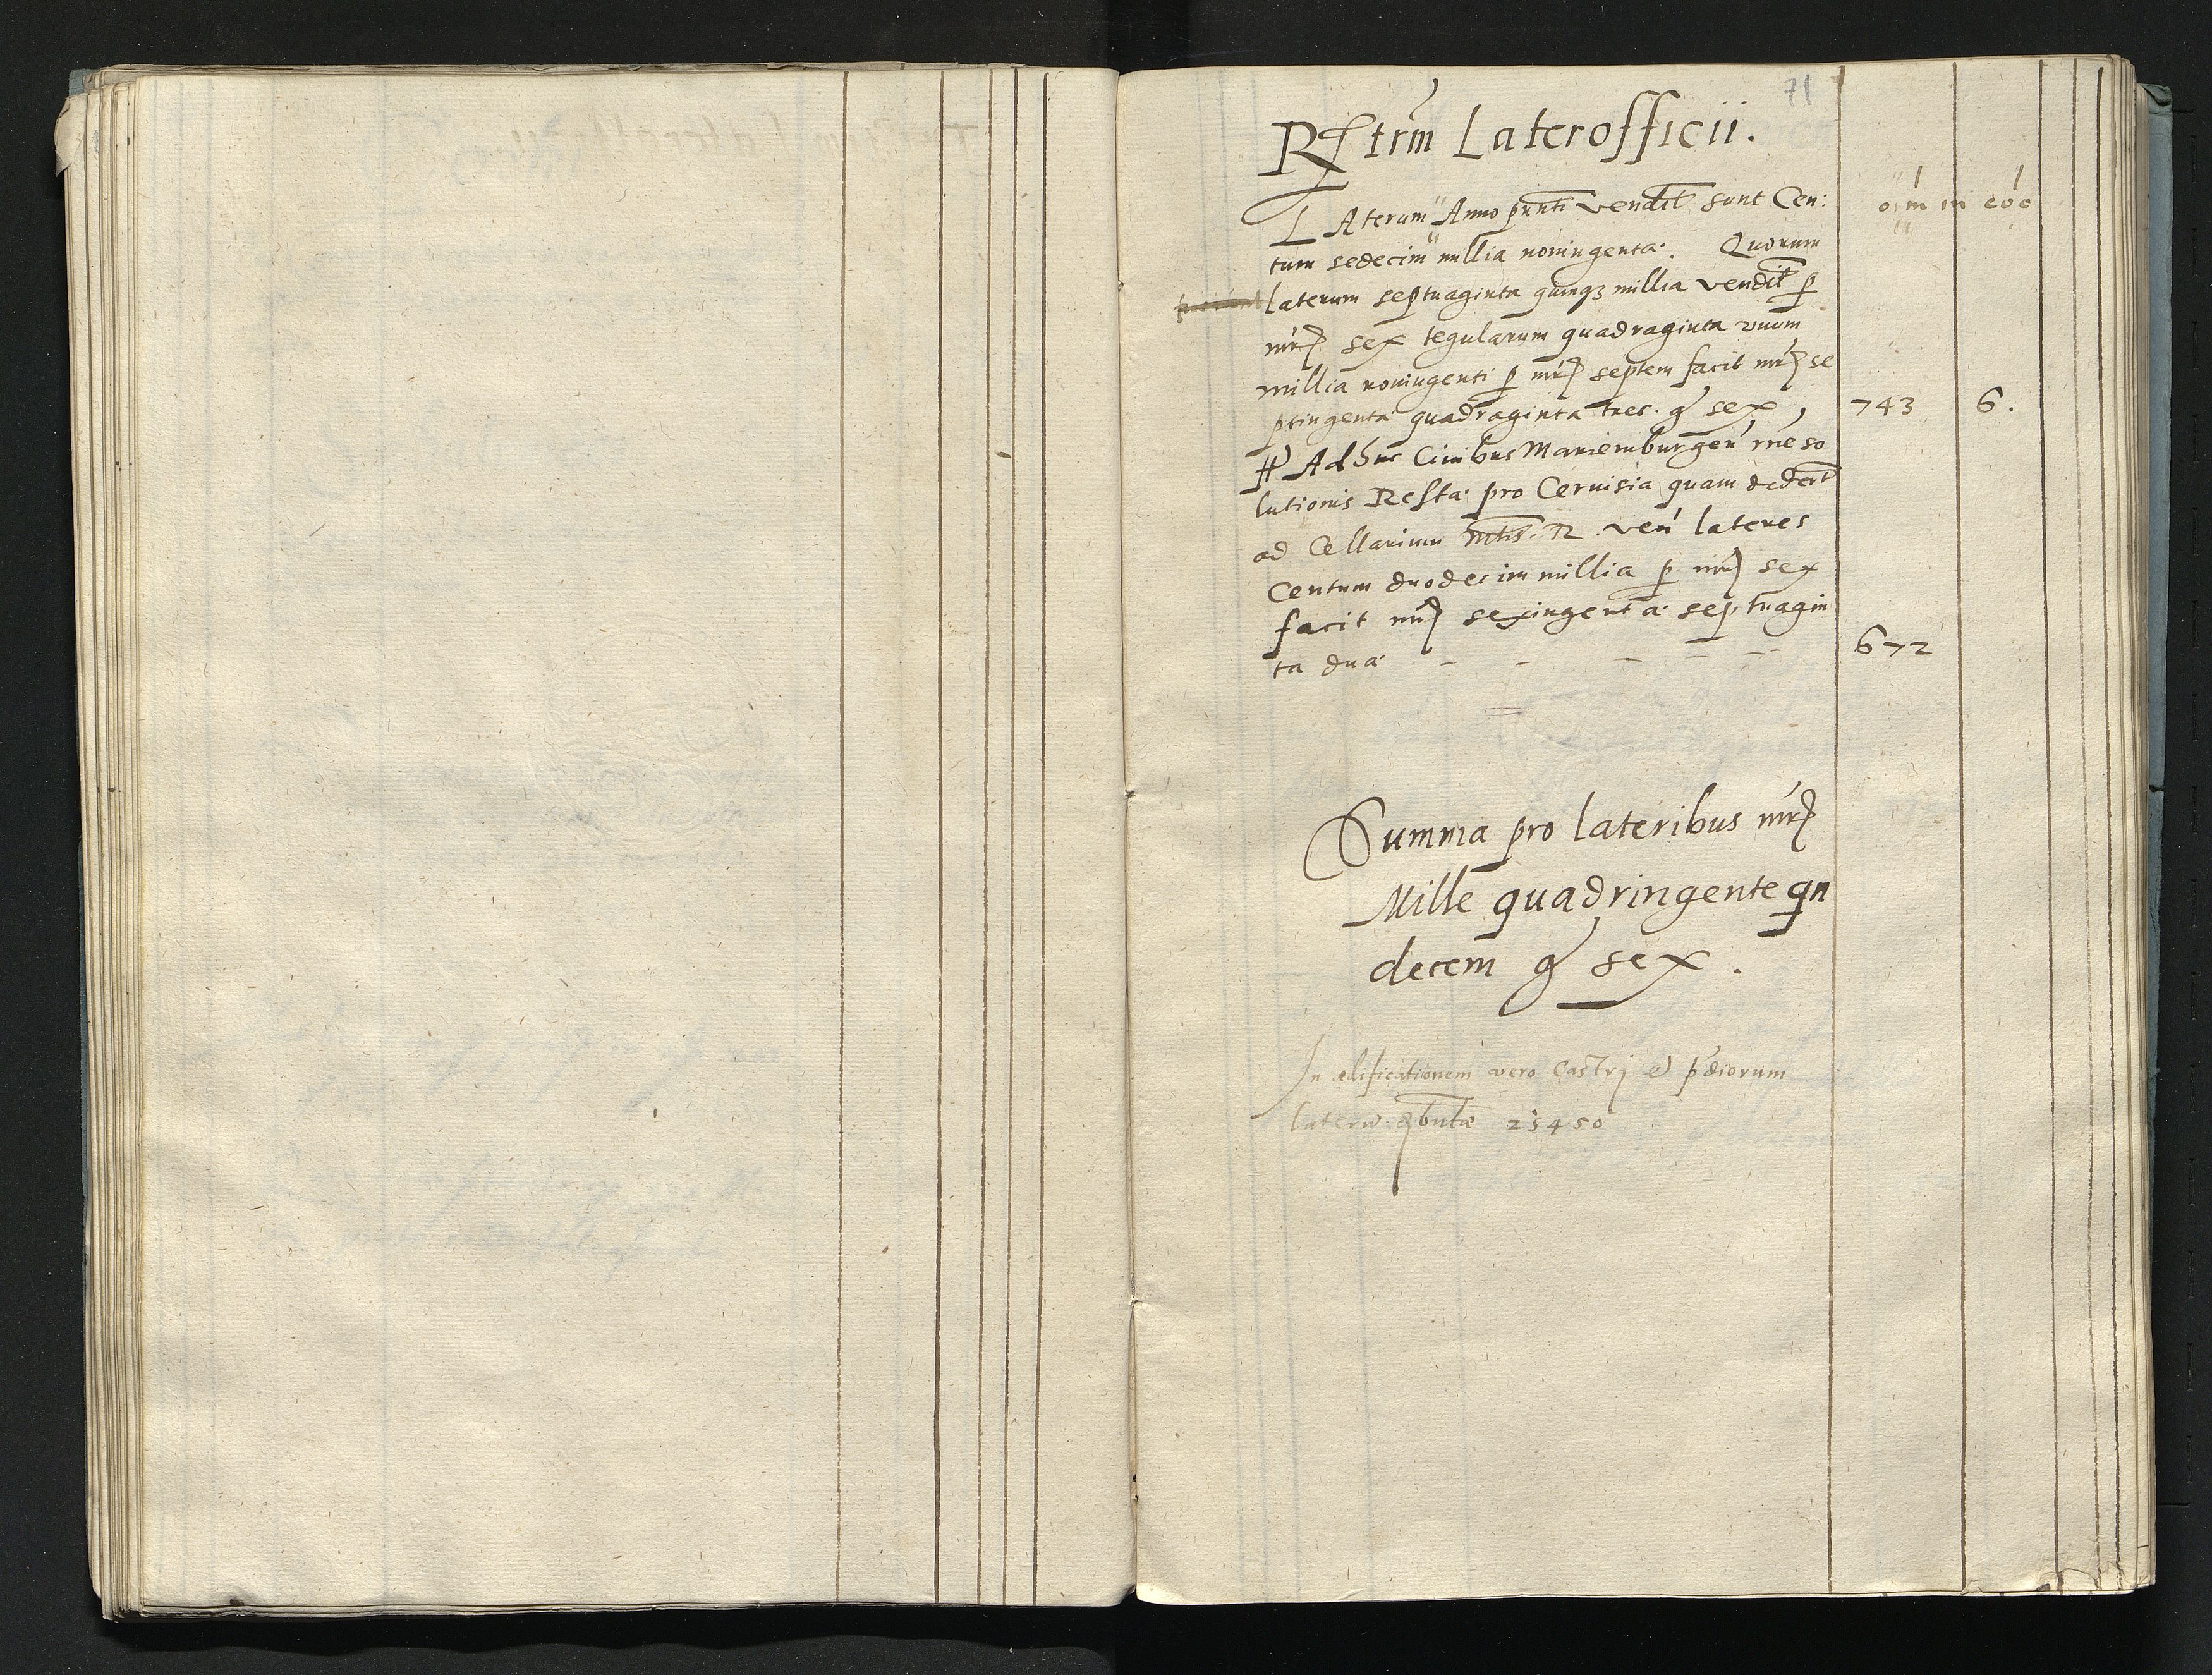 71
Rḡtrm Laterofficii.
LAterum Anno pñti vendit sunt Cen:
tum sedecim millia noningenta. Quorum
laterum septuaginta quinqꝫ millia vendit p
mr̃ sex tegularum quadraginta vnum
millia noningenti p mr̃ septem facit mr̃ se
ptingenta quadraginta tres. g̃ sex, 743 6.
Adhuc Ciuibus Mariemburgeñ róne so
lutionis Resta pro Ceruisia quam dedert
ad Cellarium veñ lateres
Centum duodecim millia p mr̃ sex
facit mr̃ sexingenta septuagin
ta dua - - - - - 672
Summa pro lateribus mr̃
Mille quadringente qn
decem g̃ sex.
In ædificationem vero Castrj et p̃diorum
25450